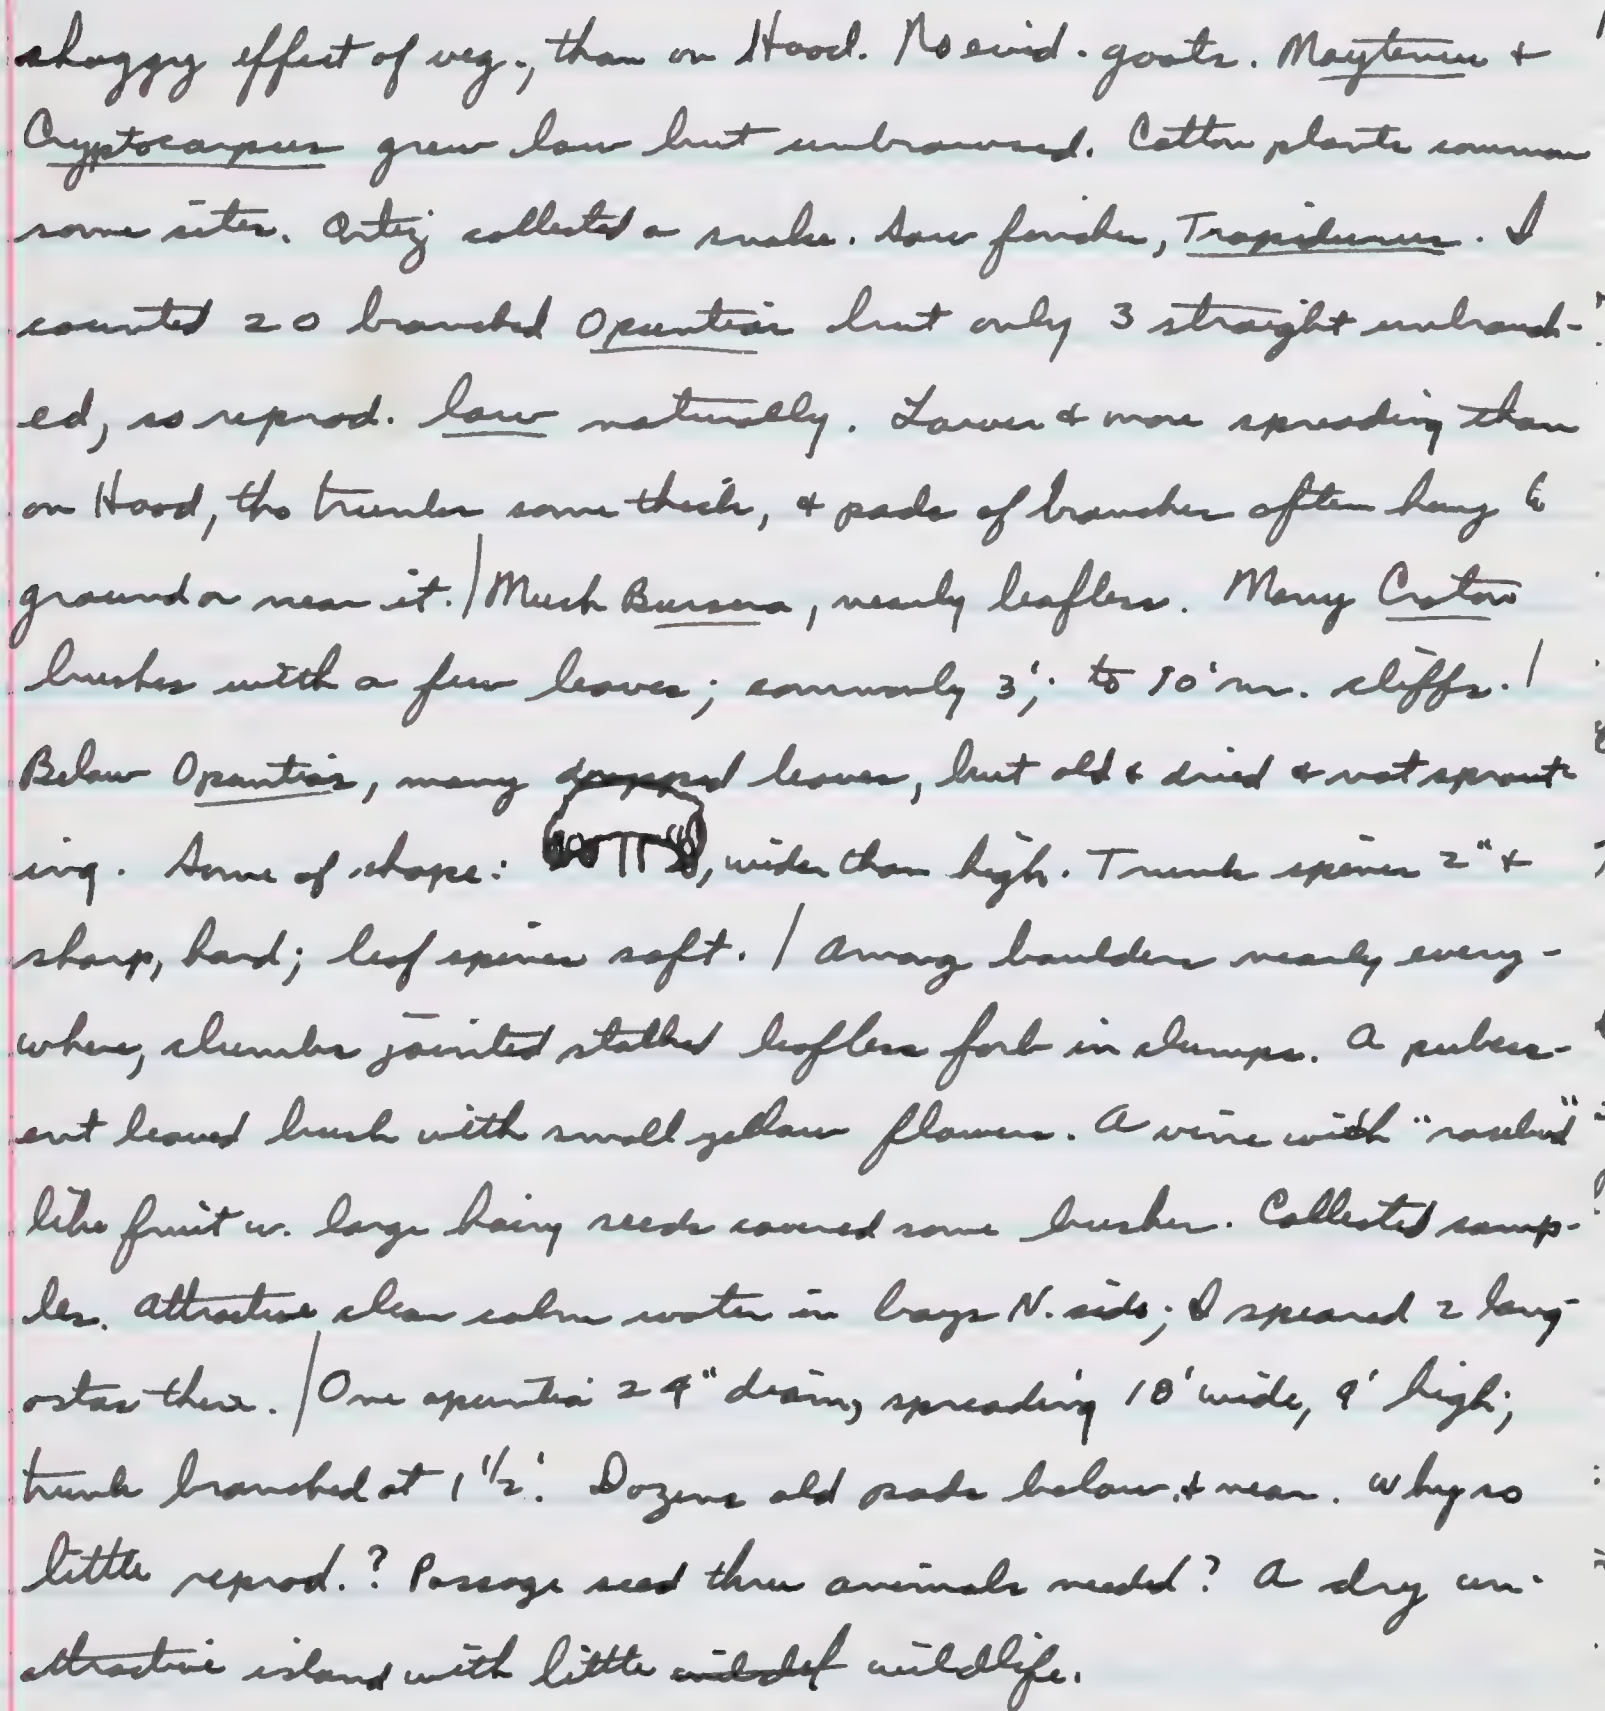 shaggy effect of veg., than on Hood. No evid. goats. Maytenus +
Cryptocarpus grew low but unbrowsed. Cotton plants common
some sites. Ortiz collected a snake. Saw finches, Tropidurus. I
counted 20 branched Opuntias but only 3 straight unbranch-
ed, so reprod. low naturally. Lower & more spreading than
on Hood, tho trunks same thick, & pads of branches often hang to
ground or near it. / Much Bursera, nearly leafless. Many Croton
bushes with a few leaves; commonly 3'; to 10' nr. cliffs. /
Below Opuntias, many dropped leaves, but old & dried & not sprout-
ing. Some of shape: , wider than high. Trunk spines 2" +
sharp, hard; leaf spines soft. / Among boulders nearly every-
where, slender jointed stalked leafless forb in clumps. A pubesc-
ent leaved bush with small yellow flowers. A vine with "rosebud"
like fruit w. large hairy seeds covered some bushes. Collected samp-
les. Attractive clear calm water in bays N. side; I speared 2 lang-
ostas there. / One opuntia 24" diam, spreading 18' wide, 9' high;
trunk branched at 1 1/2'. Dozens old pads below & near. Why so
little reprod.? Passage seed thru animals needed? A dry un-
attractive island with little wildlife.